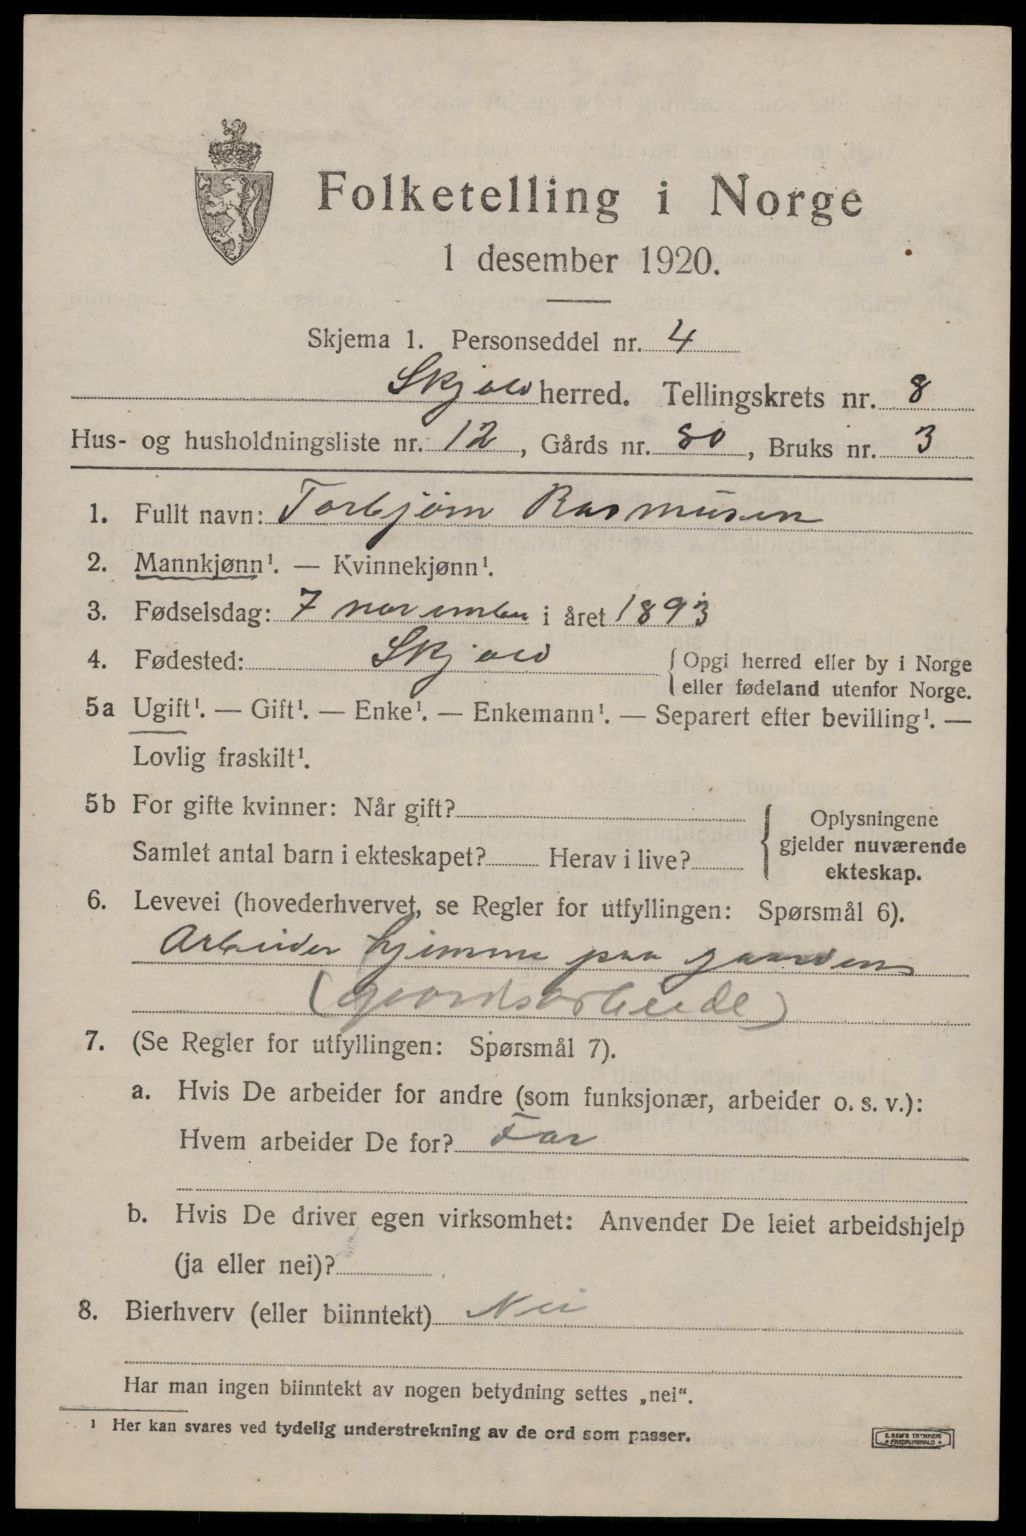 Folketelling i Norge
1 desember 1920.
Skjema 1. Personseddel nr. 4
Skjold herred. Tellingskrets nr. 8
Hus- og husholdningsliste nr. 12, Gårds nr. 80, Bruks nr. 3
1. Fullt navn: Torbjørn Rasmusen
2. Mannkjønn¹. — Kvinnekjønn¹.
3. Fødselsdag: 7 november i året 1893
4. Fødested: Skjold { Opgi herred eller by i Norge
eller fødeland utenfor Norge.
5a Ugift¹. — Gift¹. — Enke¹. — Enkemann¹. — Separert efter bevilling¹. —
Lovlig fraskilt¹.
5b For gifte kvinner: Når gift?
Samlet antal barn i ekteskapet? Herav i live?
{ Oplysningene
gjelder nuværende
ekteskap.
6. Levevei (hovederhvervet, se Regler for utfyllingen: Spørsmål 6).
Arbeider hjemme paa gaarden
(gaardsarbeide)
7. (Se Regler for utfyllingen: Spørsmål 7).
a. Hvis De arbeider for andre (som funksjonær, arbeider o. s. v.):
Hvem arbeider De for? Far
b. Hvis De driver egen virksomhet: Anvender De leiet arbeidshjelp
(ja eller nei)?
8. Bierhverv (eller biinntekt) Nei
Har man ingen biinntekt av nogen betydning settes „nei“.
¹ Her kan svares ved tydelig understrekning av de ord som passer.